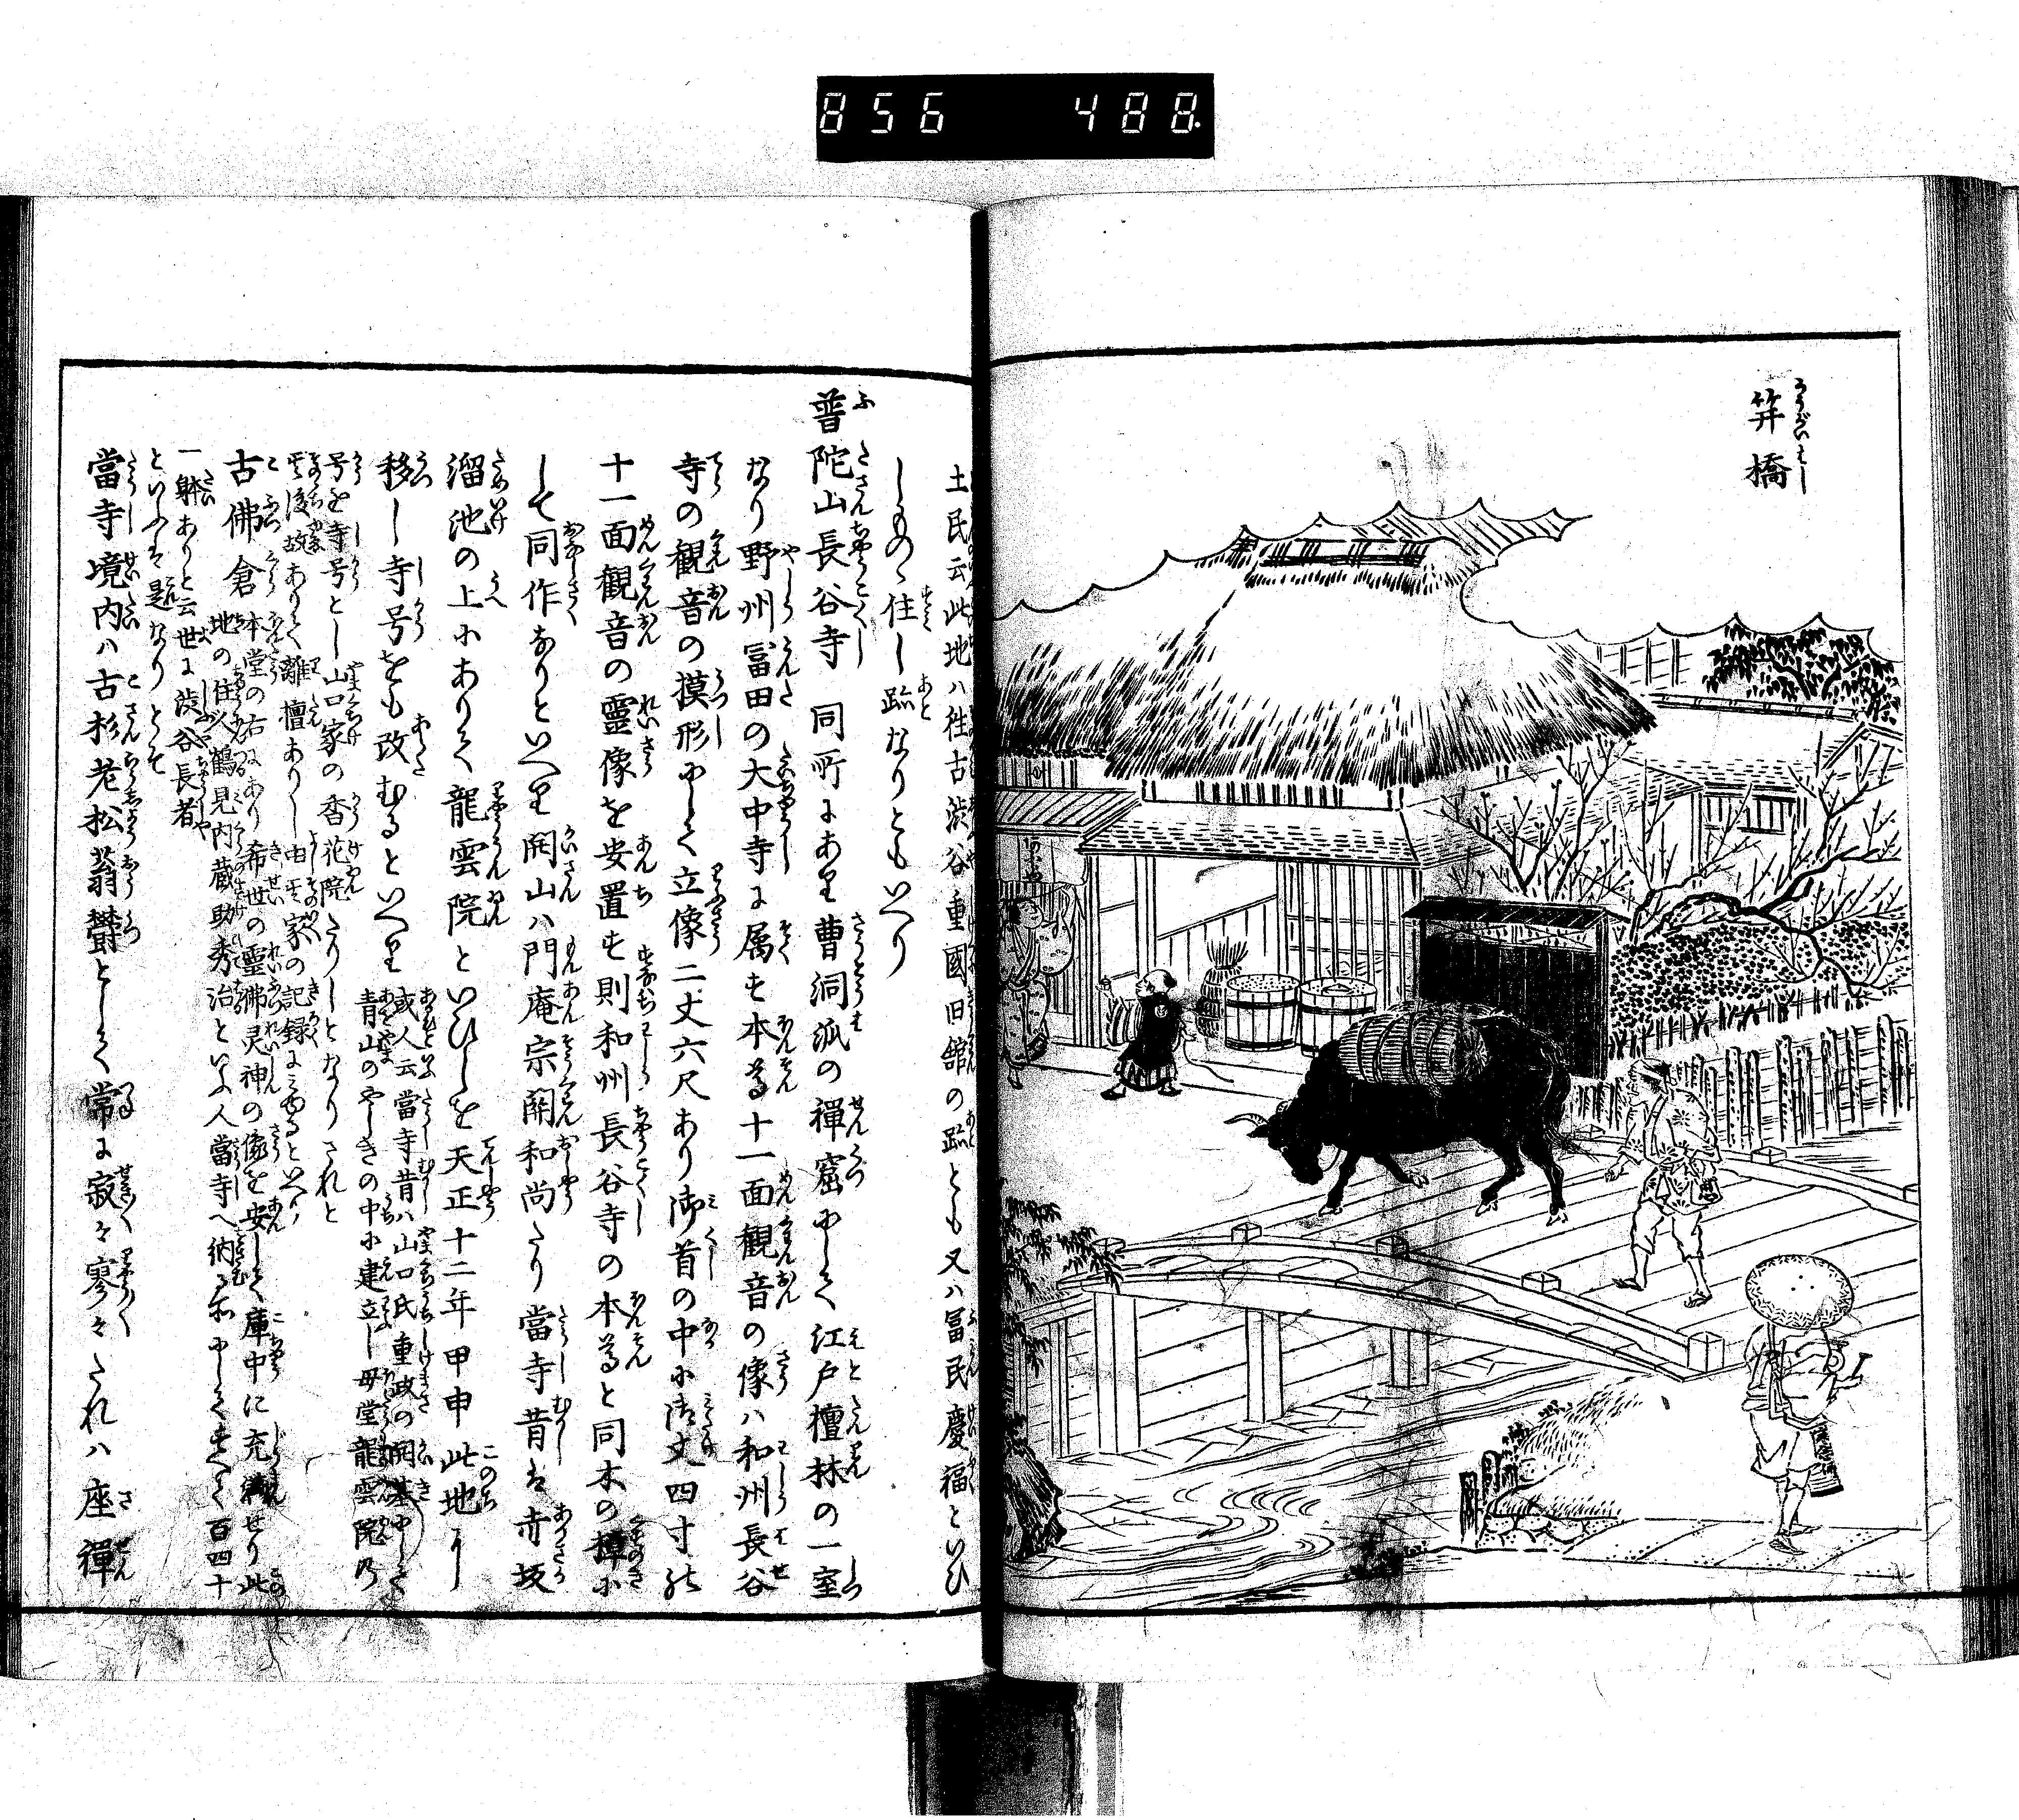 856 488
笄橋
土民云此地ハ往古渋谷重國旧館の趾とも又ハ冨民慶福といひ
しものゝ住し趾なりともいへり
普陀山長谷寺 同所にあり曹洞派の禅窟にして江戸檀林の一室
なり野州冨田の大中寺に属す本尊十一面観音の像ハ和州長谷
寺の観音の摸形にして立像二丈六尺あり御首の中に御丈四寸の
十一面観音の霊像を安置す則和州長谷寺の本尊と同木の樟に
して同作なりといへり開山ハ門庵宗関和尚たり當寺昔は赤坂
溜池の上にありて龍雲院といひしを天正十二年甲申此地に
移し寺号をも改むるといへり
或人云當寺昔ハ山口氏重政の開基にして
青山のやしきの中に建立し母堂龍雲院の
号を寺号とし山口家の香花院たりしとなりされと
其後故ありて離檀ありし由其家の記録にみゆるといへり
古佛倉
本堂の右にあり希世の霊佛灵神の像を安して庫中に充満せり此
地の住人鶴見内蔵助秀治といふ人當寺へ納る所にしてすへて百四十
一躰ありと云世に渋谷長者
といふは是なりとそ
當寺境内ハ古杉老松蓊欝として常に寂々寥々たれハ座禪